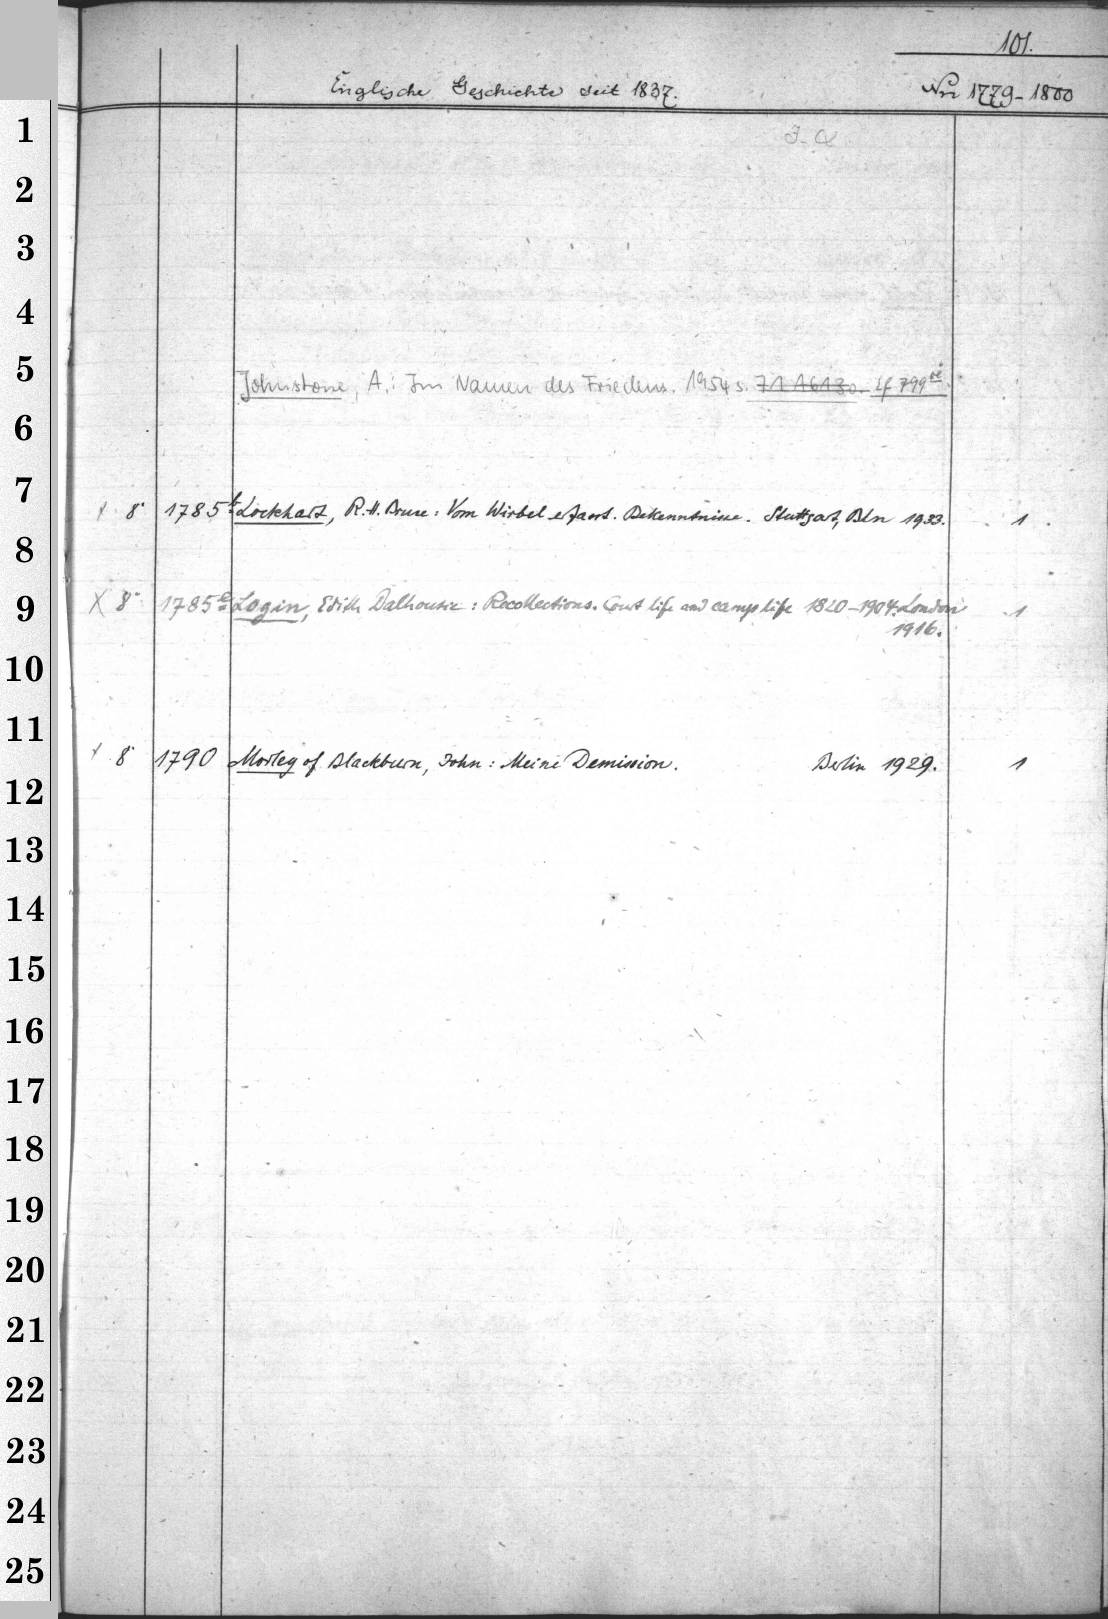 101.
Englische Geschichte seit 1837.
Nr. 1779-1800
J-Q
Johnstone, A.: Im Namen des Friedens. 1954 s. Z1 16130. Lf 799
x 8° 1785 b Lockhart, R.H. Bruce: Vom Wirbel erfasst. Bekenntnisse. Stuttgart, Bln 1933. 1
X 8° 1785 Login, Edith Dalhousie: Recollections. Court life and camp life 1820-1904. London 1
1916.
x 8° 1790 Morley of Blackburn, John: Meine Demission. Berlin 1929. 1
1
2
3
4
5
6
7
8
9
10
11
12
13
14
15
16
17
18
19
20
21
22
23
24
25